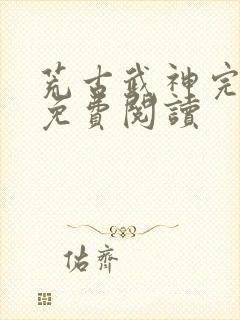 荒古武神完
免費閱讀
佑齊